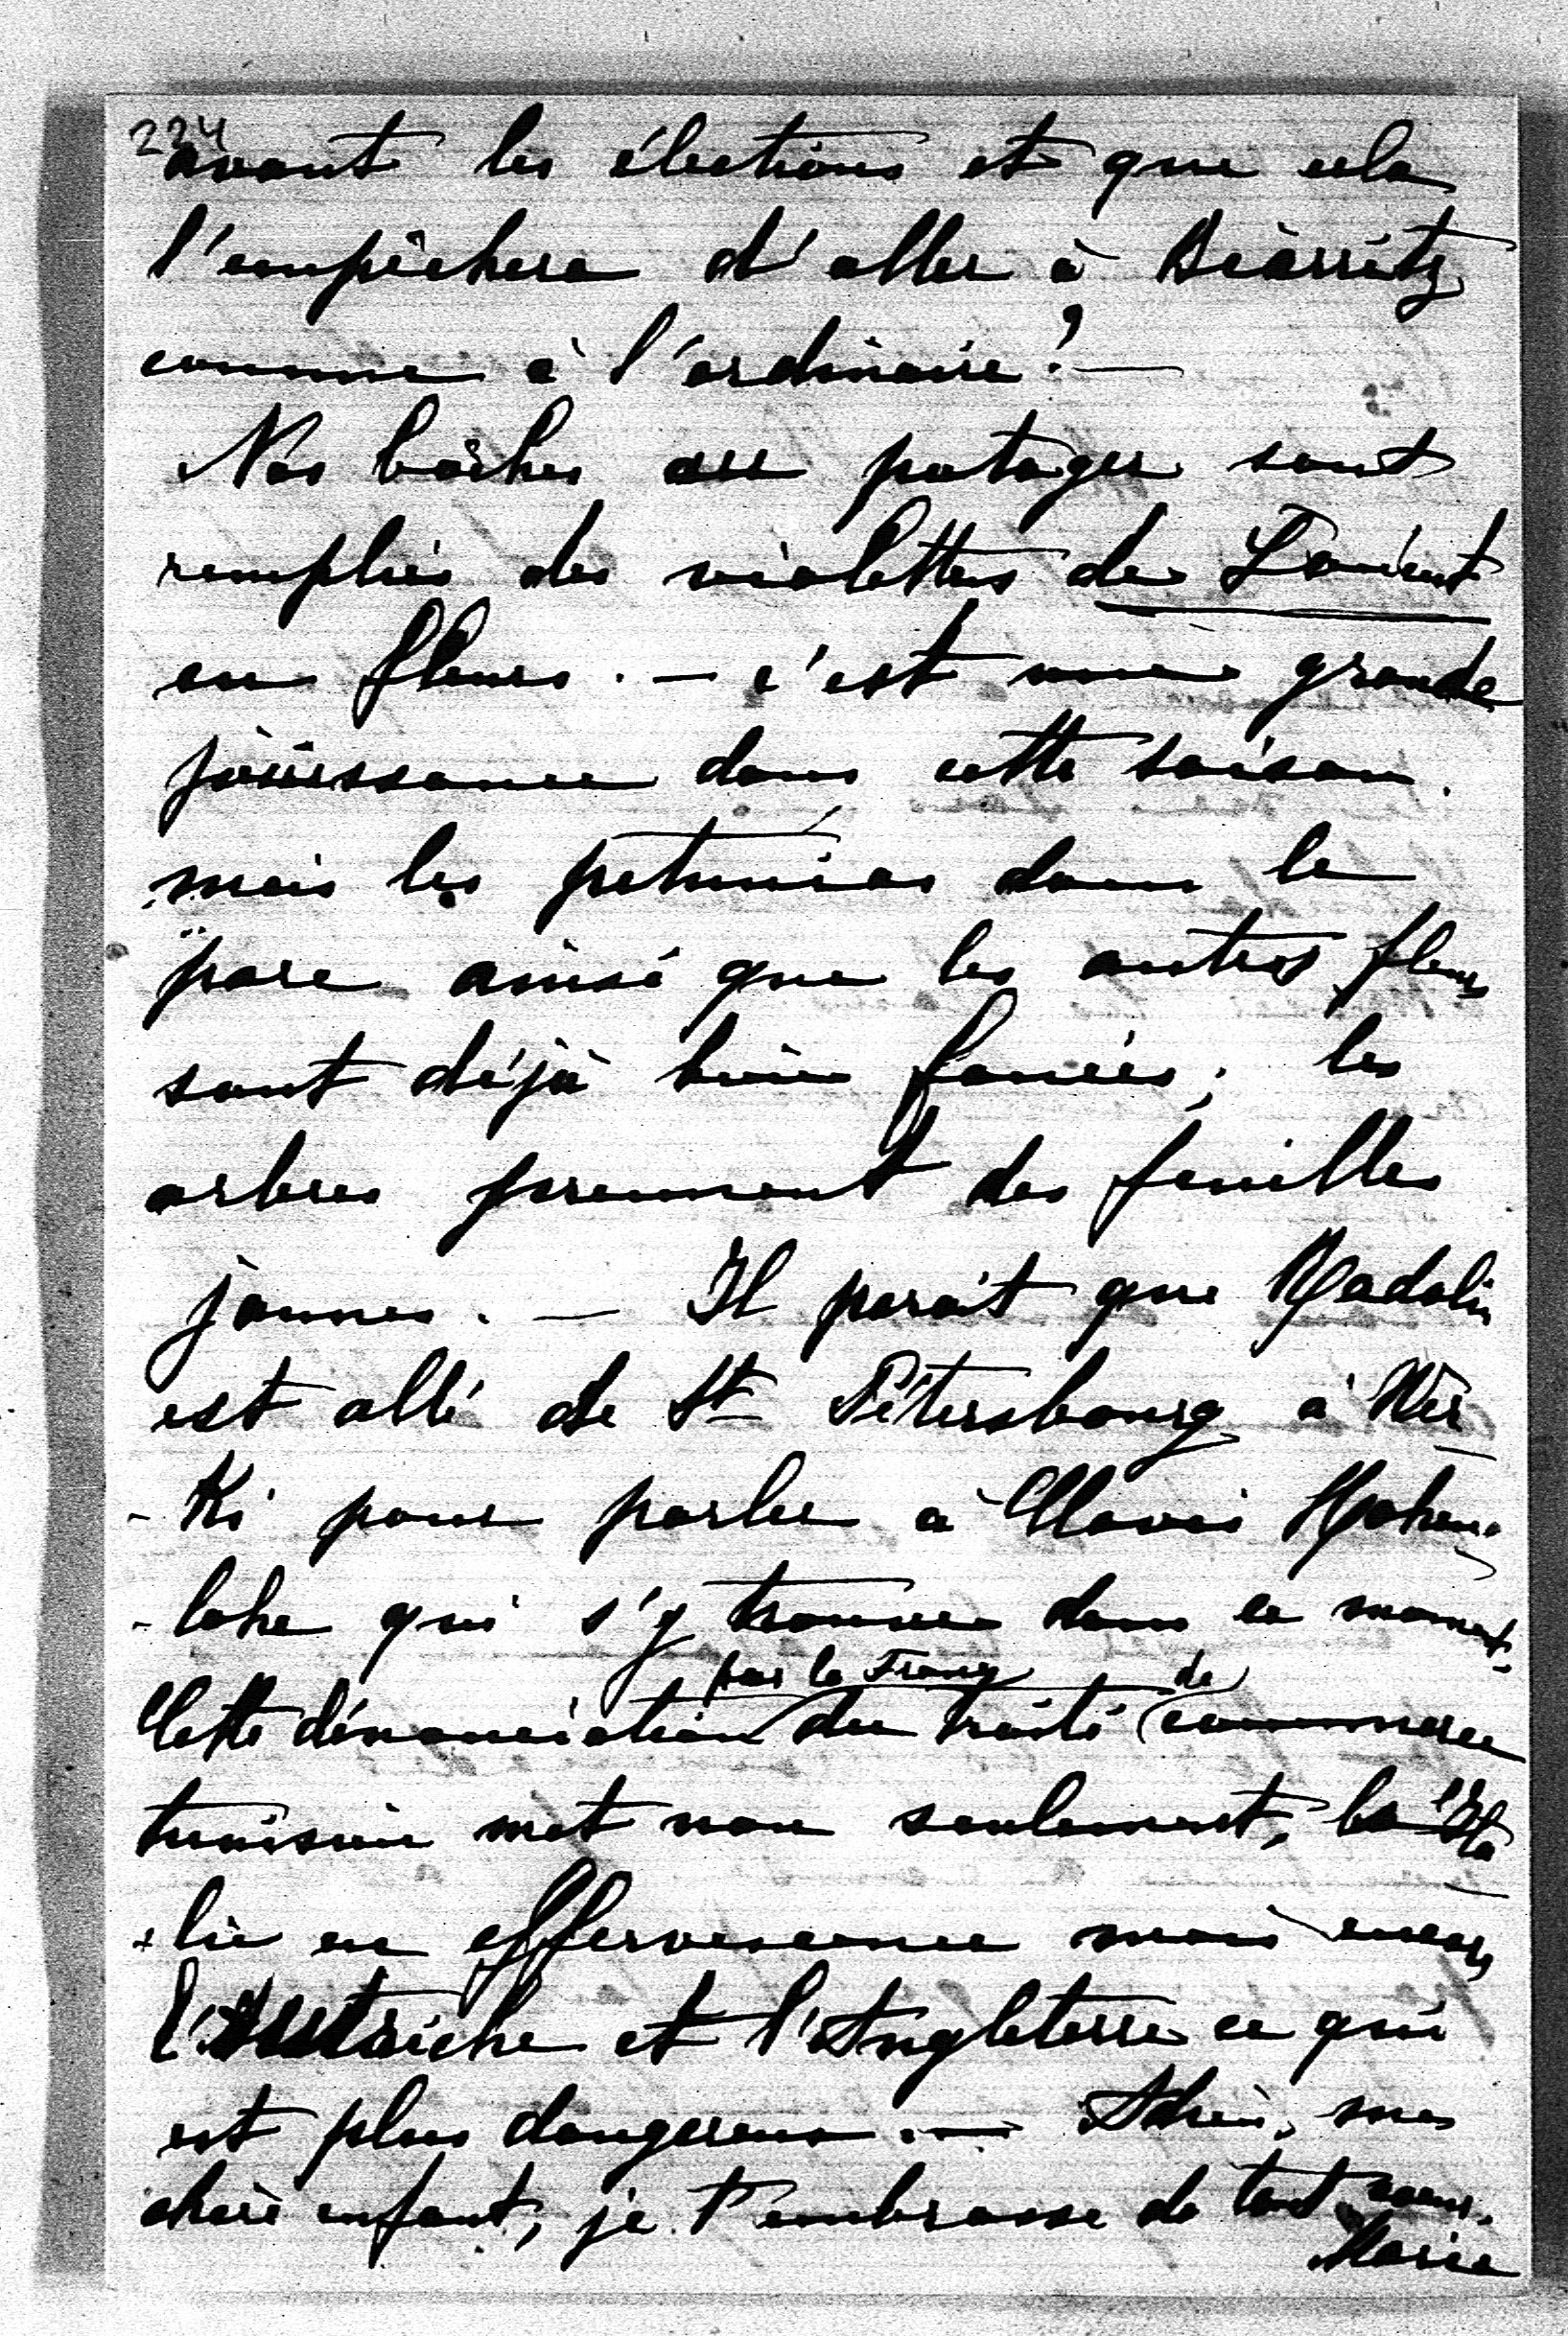 224
avant les élections et que cela
l'empêchera d'aller à Biarritz
comme à l'ordinaire? —
Nos bâches au potager sont
remplies des violettes de
en fleurs. — c'est une grande
jouissance dans cette saison.
mais les petunias dans le
parc ainsi que les autres fleurs
sont déjà bien fanées; les
arbres prennent des feuilles
jaunes. — Il parait que Radolin
est allé de St Pétersbourg à Wer
- Ki pour parler à Clovis Hohen
- lohe qui s'y trouve dans ce moment.
par la France de
Cette dénonciation du traité commerce
tunisien met non seulement, l'Ita
- lie en effervescence mais encore
l'Autriche et l'Angleterre ce qui
est plus dangereux. — Adieu, mes
chère enfant, je t'embrasse de tout coeur.
Marie